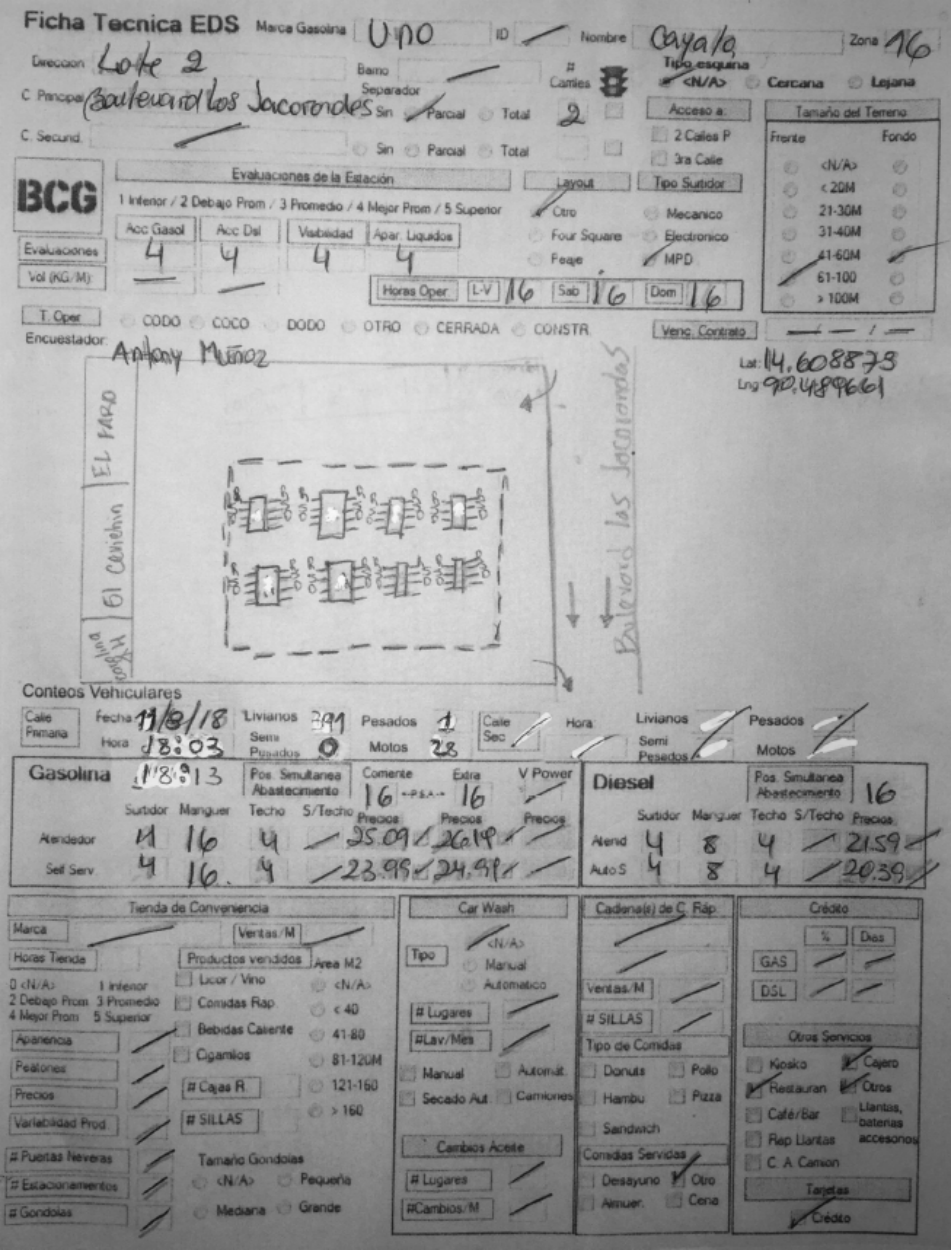 Ficha Tecnica EDS Marca Gasolina Uno ID Nombre Cayala Zona 16
Direccion Lote 2 Barrio # Carriles Tipo esquina <N/A> Cercana Lejana
C Principal Boulevard Los Jacarandas Separador Sin Parcial Total 2 Acceso a: Tamaño del Terreno
C. Secund. Sin Parcial Total 2 Calles P 3ra Calle Frente Fondo
BCG Evaluaciones de la Estación Layout Tipo Surtidor <N/A>
1 Inferior / 2 Debajo Prom / 3 Promedio / 4 Mejor Prom / 5 Superior Otro Mecanico < 20M
Acc Gasol Acc Dsl Visibilidad Apar. Liquidos Four Square Electronico 21-30M
31-40M
Evaluaciones 4 4 4 4 Peaje MPD 41-60M
Vol (KG/M) Horas Oper. L-V 16 Sab 16 Dom 16 61-100
> 100M
T. Oper CODO COCO DODO OTRO CERRADA CONSTR Venc. Contrato
Encuestador: Anthony Muñoz
Lat: 14.608873
Lng 90.489661
EL FARO
El Cevichin
Bulevard las Jacarandas
Conteos Vehiculares
Calle Primaria Fecha 11/8/18 Livianos 391 Pesados 1 Calle Sec Hora Livianos Pesados
Hora 18:03 Semi Pesados 0 Motos 28 Semi Pesados Motos
Gasolina 18:13 Pos. Simultanea Abastecimiento Corriente 16 Extra 16 V Power Diesel Pos. Simultanea Abastecimiento 16
Surtidor Manguer Techo S/Techo Precios Precios Precios Surtidor Manguer Techo S/Techo Precios
Atendedor 4 16 4 25.09 26.19 Atend 4 8 4 21.59
Self Serv 4 16 4 23.99 24.99 Auto S 4 8 4 20.39
Tienda de Conveniencia Car Wash Cadena(s) de C. Ráp. Crédito
Marca Ventas/M <N/A> % Dias
Horas Tienda Productos vendidos Area M2 Tipo Manual GAS
0 <N/A> 1 Inferior Licor / Vino <N/A> Automatico Ventas/M DSL
2 Debajo Prom 3 Promedio Comidas Rap < 40 # Lugares
4 Mejor Prom 5 Superior # SILLAS
Apariencia Bebidas Caliente 41-80 #Lav/Mes Tipo de Comidas Otros Servicios
Peatones Cigarrios 81-120M Manual Automát. Donuts Pollo Kiosko Cajero
Precios # Cajas R. 121-160 Secado Aut Camiones Hambu Pizza Restauran Otros
Variabilidad Prod. # SILLAS > 160 Sandwich Café/Bar Llantas, baterias accesorios
# Puertas Neveras Tamaño Gondolas Cambios Aceite Comidas Servidas Rep Llantas
# Estacionamientos <N/A> Pequeña # Lugares Desayuno Otro C. A. Camion
# Gondolas Mediana Grande #Cambios/M Almuer. Cena Tarjetas
Crédito